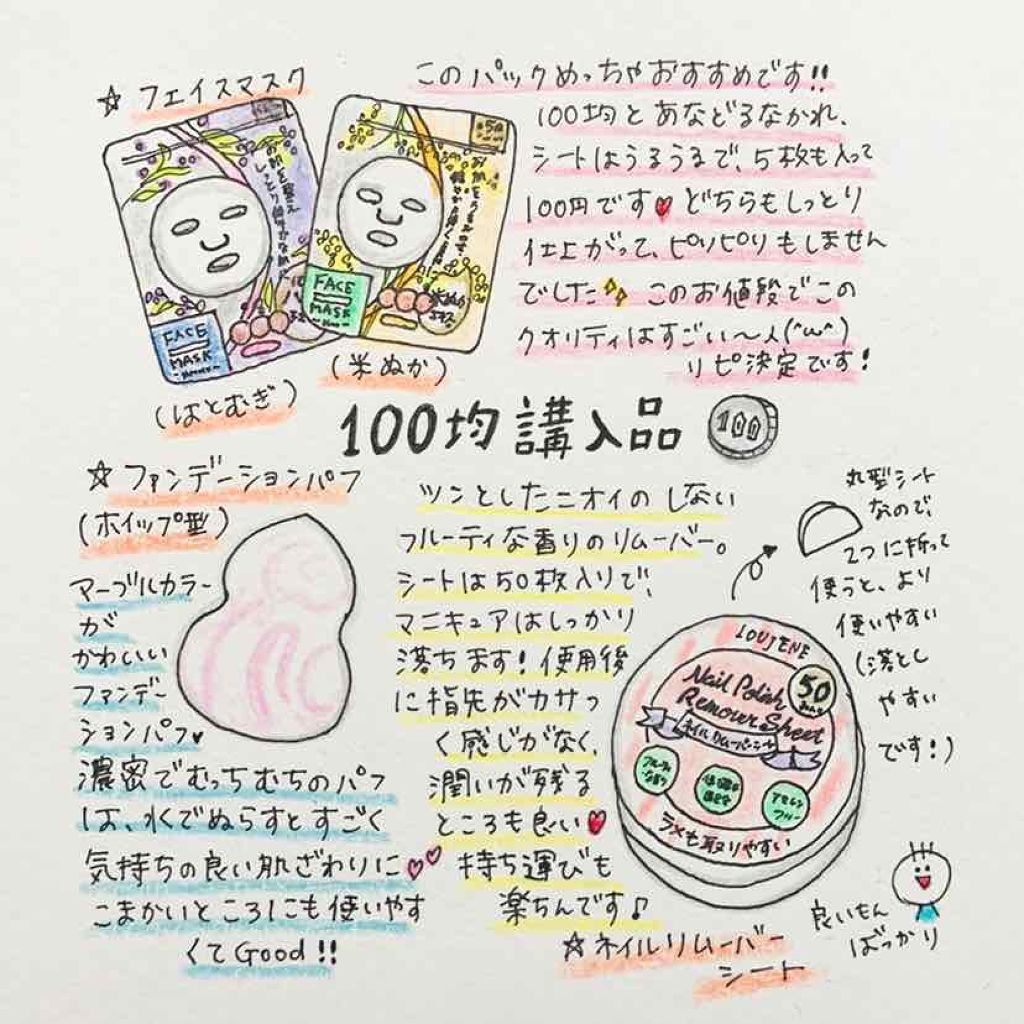 ☆フェイスマスク
このパックめっちゃおすすめです!!
100均とあなどるなかれ、
シートはうるうるで、5枚も入って
100円です♥どちらもしっとり
仕上がって、ピリピリもしません
でした✨このお値段でこの
クオリティはすごい〜人(^ω^)
リピ決定です!
FACE
MASK
FACE
MASK
(はとむぎ)
(米ぬか)
100均 講入品
100
☆ファンデーションパフ
(ホイップ型)
マーブルカラー
が
かわいい
ファンデー
ションパフ♥
濃密でむっちむちのパフ
は、水でぬらすとすごく
気持ちの良い肌ざわりに♡♡
こまかいところにも使いやす
くてGood!!
ツンとしたニオイのしない
フルーティな香りのリムーバー。
シートは50枚入りで、
マニキュアはしっかり
落ちます!使用後
に指先がカサっ
く感じがなく、
潤いが残る
ところも良い♥
持ち運びも
楽ちんです♪
丸型シート
なので、
2つに折って
使うと、より
使いやすい
(落とし
やすい
です!)
LOUJENE
50
Nail Polish
Remover Sheet
ネイルリムーバーシート
フルーティ
な香り
アセトン
フリー
ラメも取りやすい
☆ネイルリムーバー
シート
良いもん
ばっかり